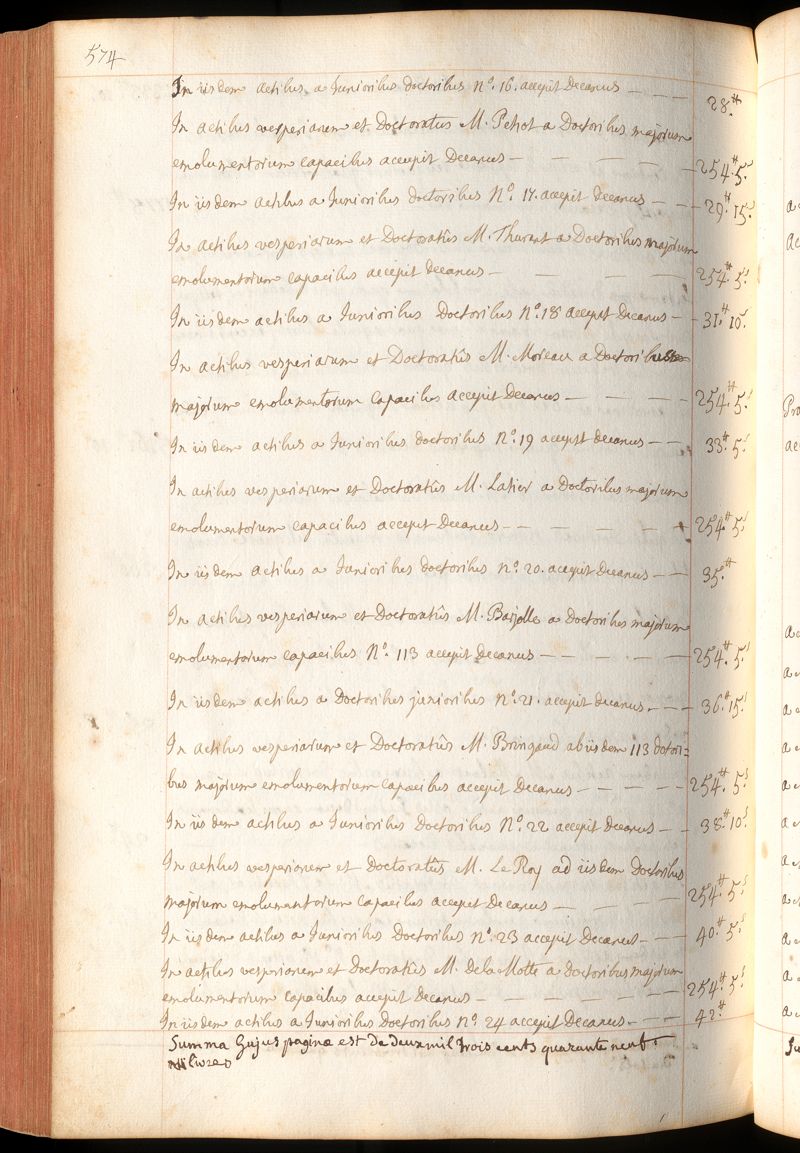 574
In iisdem actibus a Junioribus doctoribus n°. 16. accepit Decanus — — — 28.tt
In actibus vesperiarum et Doctoratus M. Petiot a Doctoribus majorum
emolumentorum capacibus accepit Decanus — — — — — 254.tt 5.s
In iisdem actibus a Junioribus doctoribus N°. 17. accepit Decanus — — — 29.tt 15.s
In actibus vesperiarum et Doctoratûs M. Thurant a Doctoribus majorum
emolumentorum capacibus accepit Decanus — — — — — 254.tt 5.s
In iisdem actibus a Junioribus Doctoribus N°. 18 accepit Decanus — — 31.tt 10.s
In actibus vesperiarum et Doctoratûs M. Moreau a Doctoribus
majorum emolumentorum capacibus accepit Decanus — — — — 254.tt 5.s
In iisdem actibus a Junioribus doctoribus N°. 19 accepit decanus — — 33.tt 5.s
In actibus vesperiarum et Doctoratûs M. Latier a Doctoribus majorum
emolumentorum capacibus accepit Decanus — — — — — 254.tt 5.s
In iisdem actibus a Junioribus doctoribus n°. 20. accepit Decanus — — 35.tt
In actibus vesperiarum et Doctoratûs M. Barjolle a Doctoribus majorum
emolumentorum capacibus N°. 113 accepit Decanus — — — — — 254.tt 5.s
In iisdem actibus a Doctoribus junioribus n°. 21. accepit decanus. — — 36.tt 15.s
In actibus vesperiarum et Doctoratûs M. Bringaud ab iisdem 113 doctori=
bus majorum emolumentorum capacibus accepit Decanus — — — — — 254.tt 5.s
In iisdem actibus a Junioribus Doctoribus N°. 22 accepit Decanus — — 38.tt 10.s
In actibus vesperiarum et Doctoratus M. Le Roy ad iisdem Doctoribus
majorum emolumentorum capacibus accepit Decanus — — — — 254.tt 5.s
In iisdem actibus a Junioribus Doctoribus n°. 23 accepit Decanus — — — 40.tt 5.s
In actibus vesperiarum et Doctoratûs M. de la Motte a Doctoribus majorum
emolumentorum capacibus accepit Decanus — — — — — — 254.tt 5.s
In iisdem actibus a Junioribus Doctoribus n°. 24 accepit Decanus — — — 42.tt
Summa hujus paginæ est de deux mil trois cents quarante neuf
livres